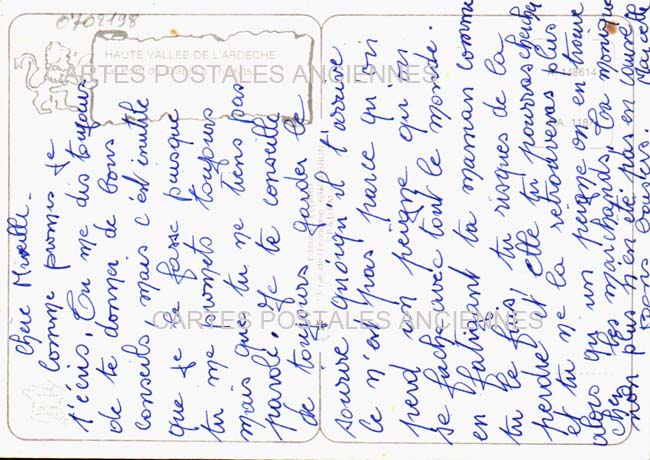 0702198
HAUTE VALLEE DE L'ARDECHE
CARTES POSTALES ANCIENNES
CARTES POSTALES ANCIENNES
Chère Mireille.
Comme promis je
t'écris. Tu me dis toujours
de te donner de bons
conseils, mais c'est inutile
que je le fasse puisque
tu me promets toujours
mais que tu ne tiens pas
parole. Je te conseille
de toujours garder le
sourire quoiqu'il t'arrive
ce n'est pas parce qu'on
perd un peigne qu'on
se fâche avec tout le monde.
en fatiguant ta maman comme
tu le fais, tu risques de la
perdre et elle tu pourras chercher
et tu ne la retrouveras plus
alors qu'un peigne on en trouve
chez les marchands. Ta monique
non plus n'en était pas en cause
bons baisers. Marcelle